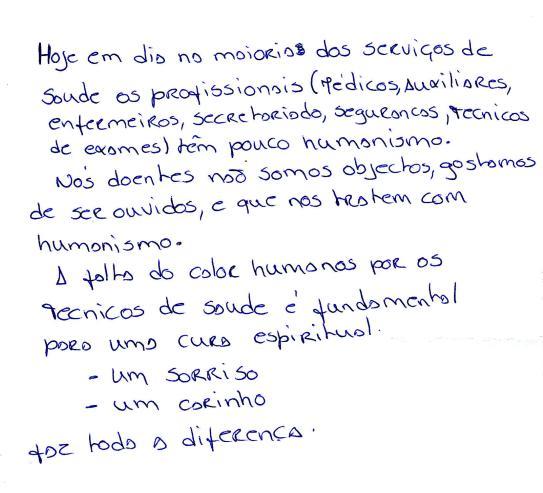 Hoje em dia na maioria dos serviços de
saude os profissionais (Médicos, Auxiliares,
enfermeiros, secretariado, seguranças, tecnicos
de exames) têm pouco humanismo.
Nós doentes não somos objectos, gostamos
de ser ouvidos, e que nos tratem com
humanismo.
A falta do calor humanas por os
tecnicos de saude é fundamental
para uma cura espiritual.
- um sorriso
- um carinho
faz toda a diferença.